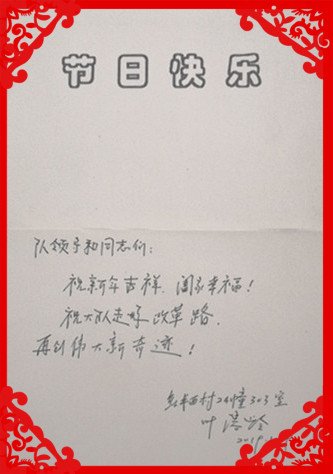 节日快乐
队领导和同志们:
祝新年吉祥、阖家幸福!
祝大队走好改革路、
再创伟大新奇迹!
西村24幢303室
叶
2019.